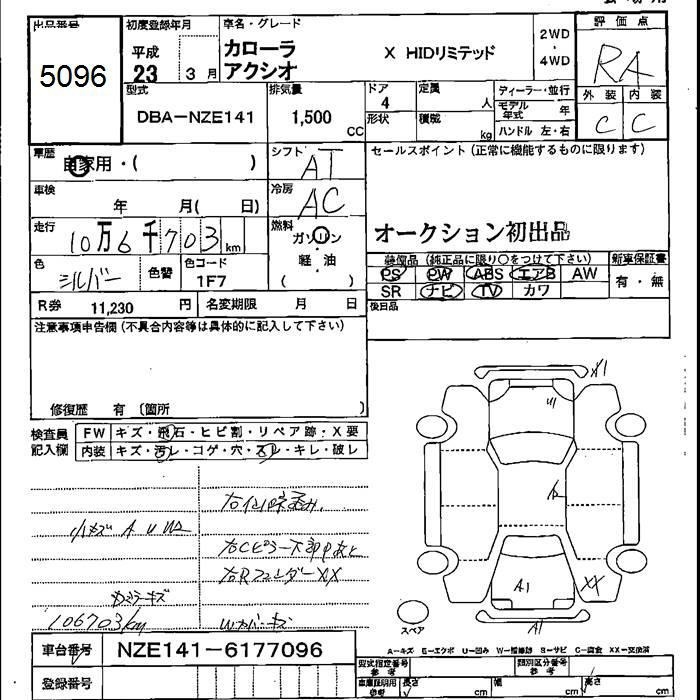 出品番号 初度登録年月 車名・グレード 評価点
5096
平成
23 3 月
カローラ
アクシオ
X HIDリミテッド
2WD
・
4WD
RA
型式 排気量 ドア 定員 ディーラー・並行 外装 内装
DBA-NZE141 1,500 CC
4 人
モデル年式 年
形状 積載 kg ハンドル 左・右
C C
車歴 自家用・( )
シフト AT
セールスポイント(正常に機能するものに限ります)
車検 年 月( 日)
冷房 AC
走行 10万6千703 km
燃料 ガソリン・
軽・油
( )
オークション初出品
色 シルバー 色替 色コード 1F7
装備品 (純正品に限り○をつけて下さい) 新車保証書
PS PW ABS エアB AW
SR ナビ TV カワ
有・無
R券 11,230 円 名変期限 月 日
後日品
注意事項申告欄(不具合内容等は具体的に記入して下さい)
修復歴 有 〔箇所 〕
検査員
記入欄
FW キズ・飛石・ヒビ割・リペア跡・X要
内装 キズ・汚レ・コゲ・穴・スレ・キレ・破レ
小キズ A U
右Cピラー下部
右Rフェンダー XX
106703km
X1
A1
XX
A1
スペア
A-キズ E-エクボ U-凹み W-補修跡 S-サビ C-腐食 XX-交換済
車台番号 NZE141-6177096
登録番号
型式指定番号
参考
類別区分番号
参考
車庫証明用
参考
長さ cm 幅 cm 高さ cm